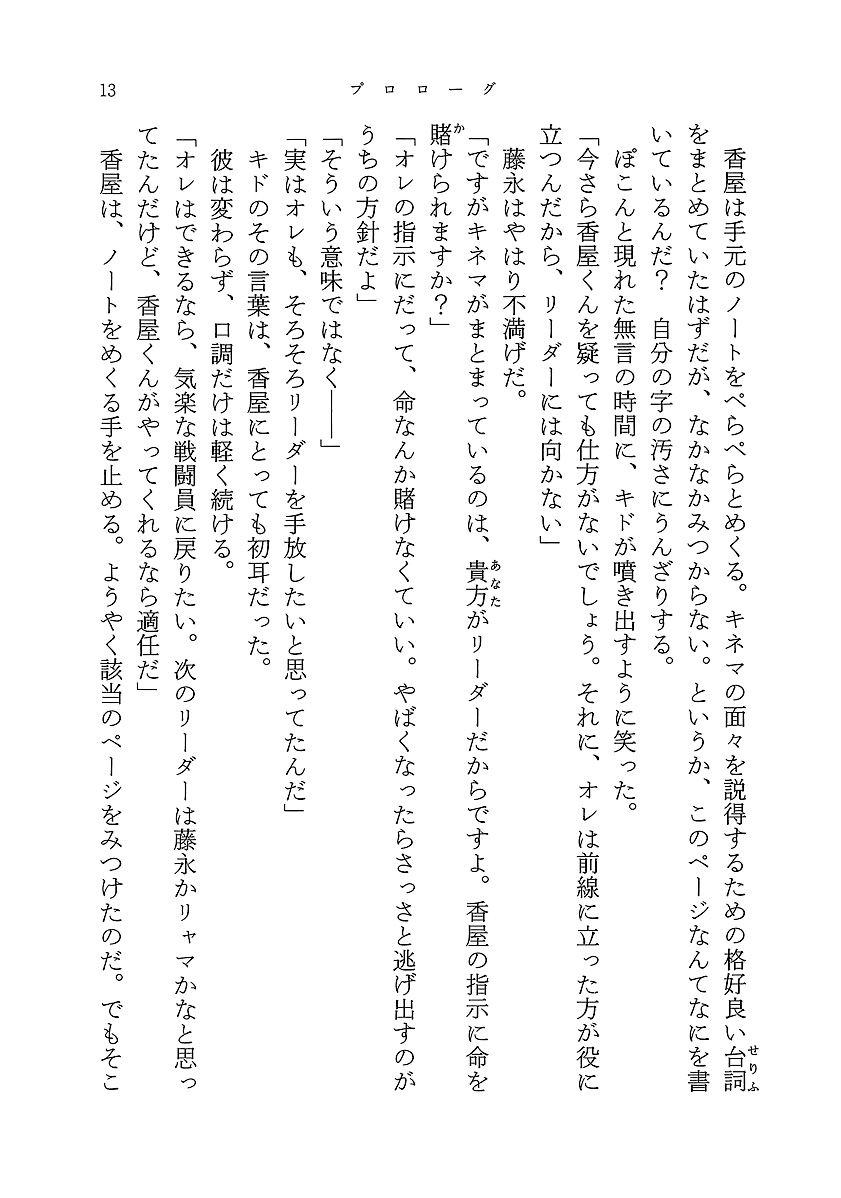 13
プロローグ
香屋は手元のノートをぺらぺらとめくる。キネマの面々を説得するための格好良い台詞
せりふ
をまとめていたはずだが、なかなかみつからない。というか、このページなんてなにを書
いているんだ？　自分の字の汚さにうんざりする。
ぽこんと現れた無言の時間に、キドが噴き出すように笑った。
「今さら香屋くんを疑っても仕方がないでしょう。それに、オレは前線に立った方が役に
立つんだから、リーダーには向かない」
藤永はやはり不満げだ。
「ですがキネマがまとまっているのは、貴方がリーダーだからですよ。香屋の指示に命を
あなた
賭けられますか？」
か
「オレの指示にだって、命なんか賭けなくていい。やばくなったらさっさと逃げ出すのが
うちの方針だよ」
「そういう意味ではなく――」
「実はオレも、そろそろリーダーを手放したいと思ってたんだ」
キドのその言葉は、香屋にとっても初耳だった。
彼は変わらず、口調だけは軽く続ける。
「オレはできるなら、気楽な戦闘員に戻りたい。次のリーダーは藤永かリャマかなと思っ
てたんだけど、香屋くんがやってくれるなら適任だ」
香屋は、ノートをめくる手を止める。ようやく該当のページをみつけたのだ。でもそこ